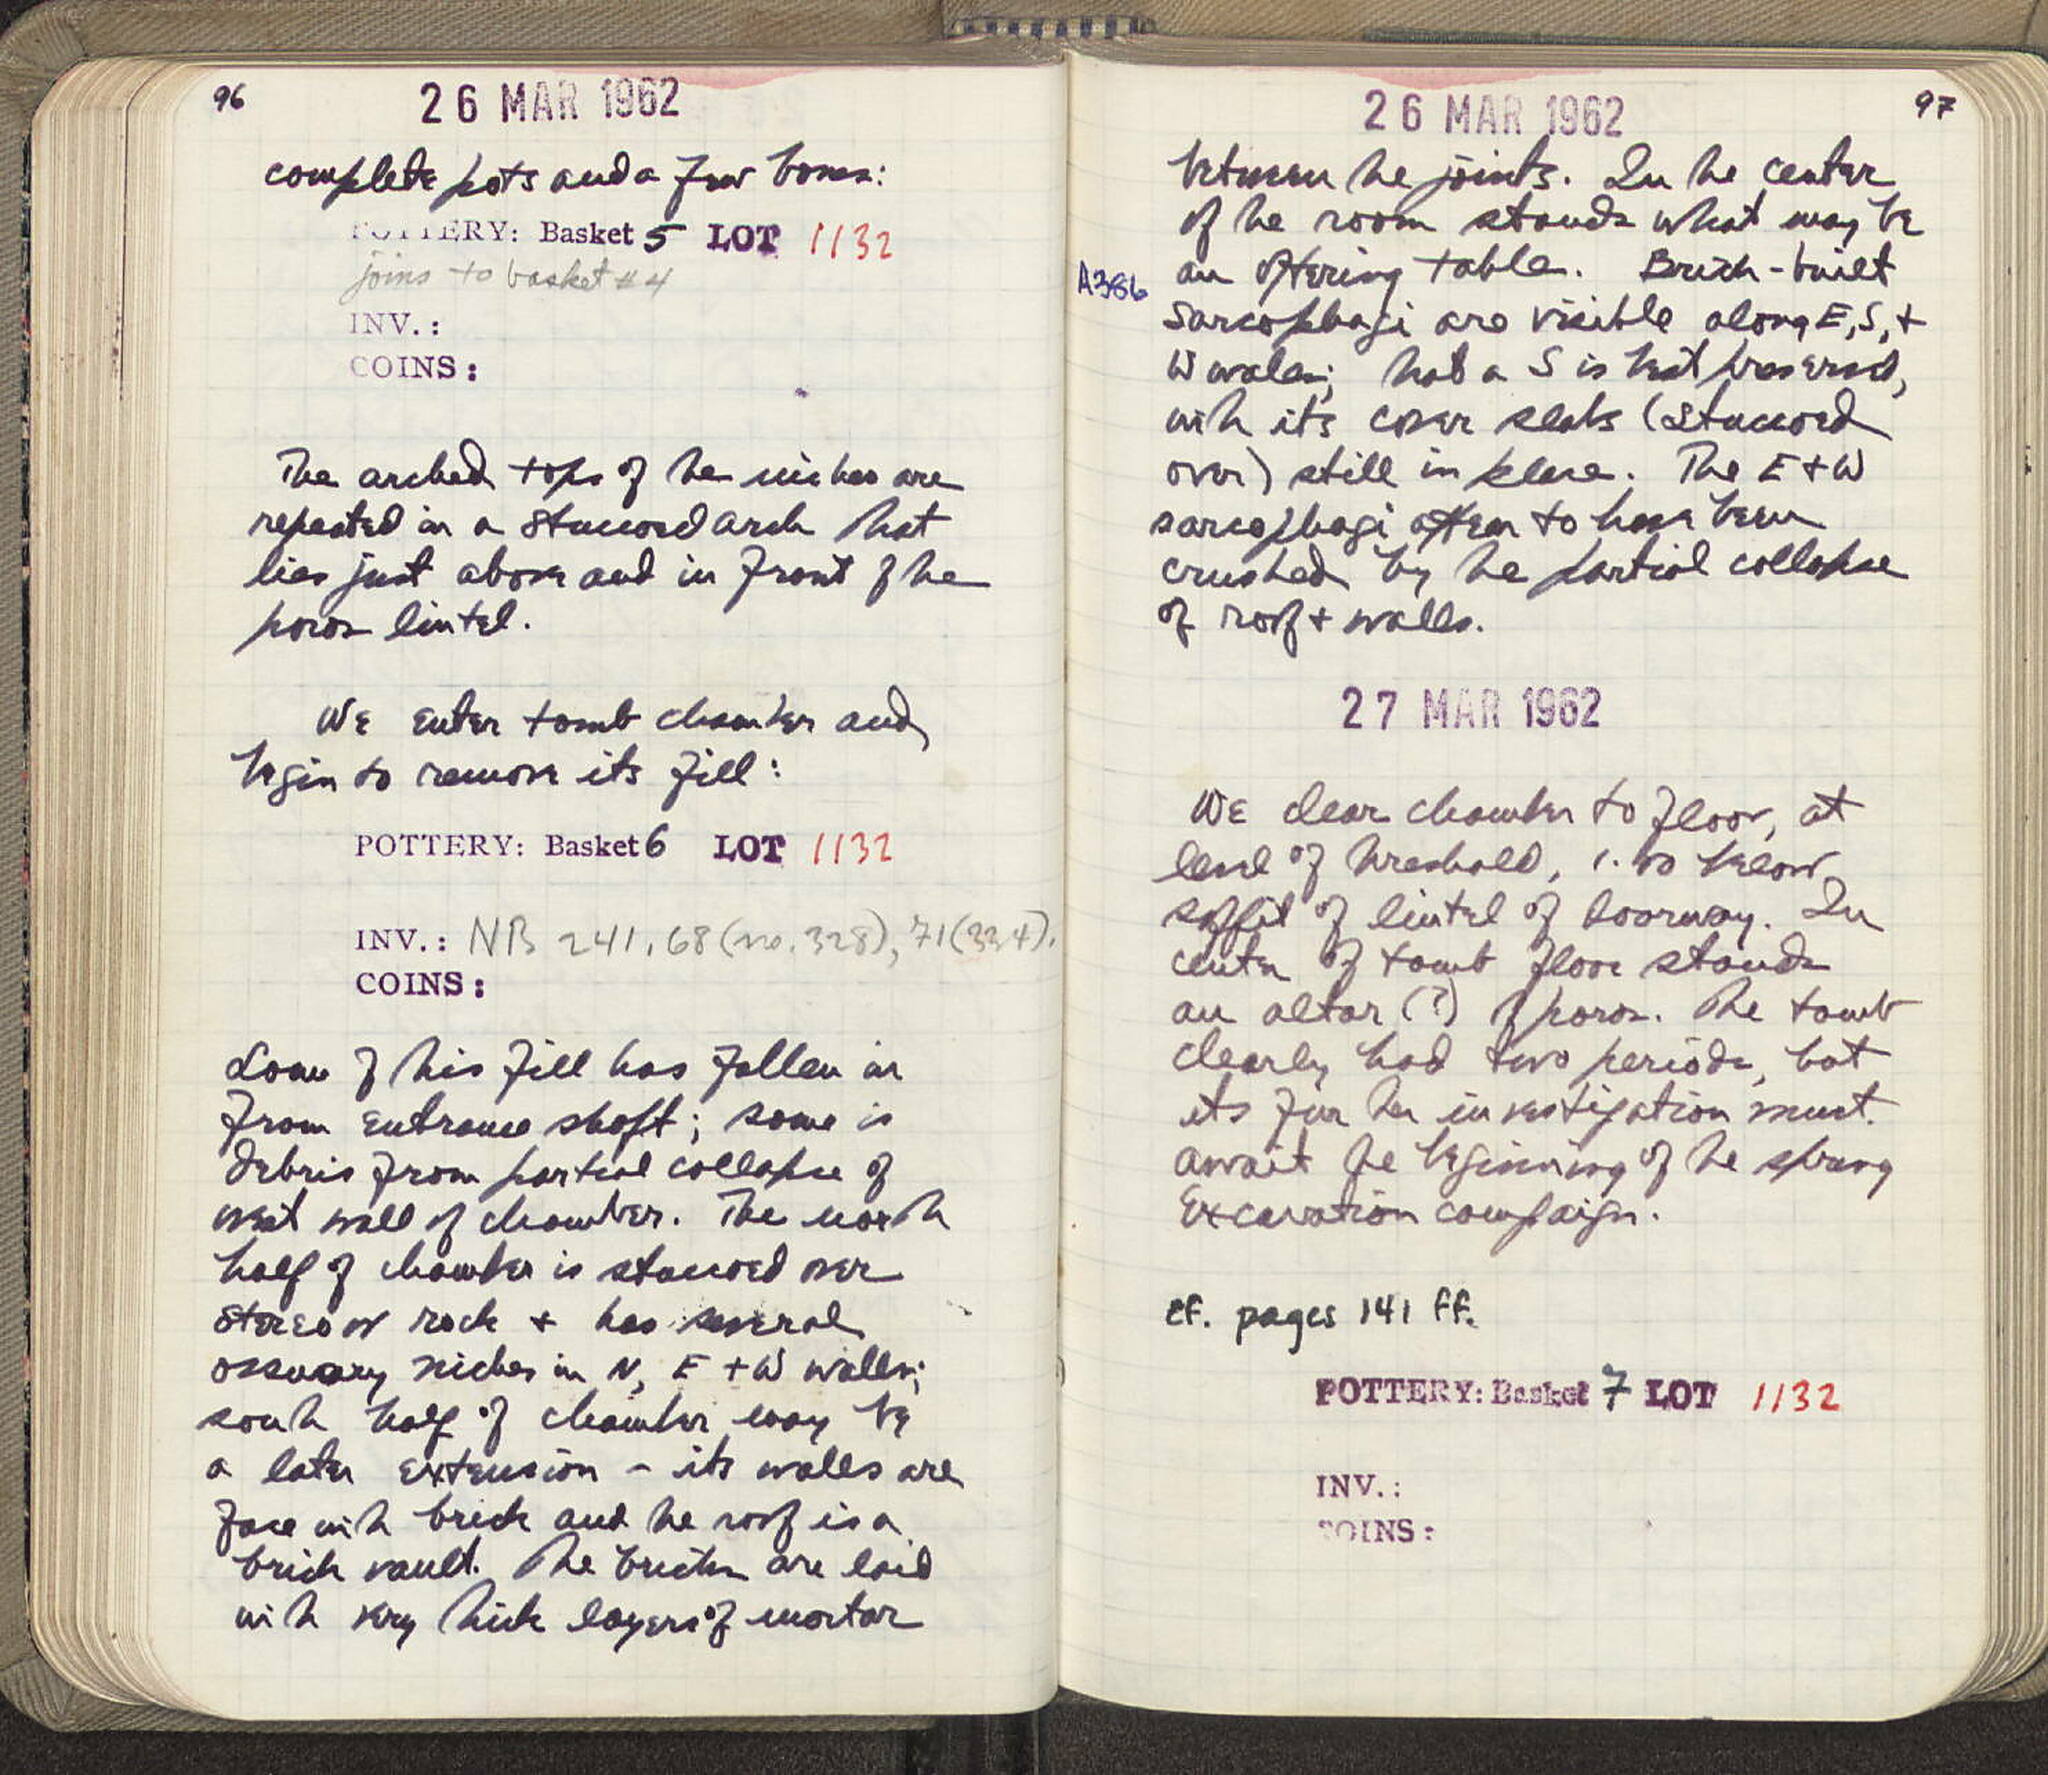 96
26 MAR 1962
complete pots and a few bones:
POTTERY: Basket 5 LOT 1132
joins to basket #4
INV.:
COINS:
The arched tops of the niches are
repeated in a stuccoed arch that
lies just above and in front of the
poros lintel.
We enter tomb chamber and
begin to remove its fill:
POTTERY: Basket 6 LOT 1132
INV.: NB 241, 68 (no. 328), 71 (334).
COINS:
Some of this fill has fallen in
from entrance shaft; some is
debris from partial collapse of
west wall of chamber. The north
half of chamber is stuccoed over
stereo or rock + has several
ossuary niches in N, E + W walls;
south half of chamber may be
a later extension – its walls are
face with brick and the roof is a
brick vault. The bricks are laid
with very thick layers of mortar
97
26 MAR 1962
between the joints. In the center
of the room stands what may be
A386
an offering table. Brick-built
sarcophagi are visible along E, S, +
W walls; that a S is best preserved,
with its cover slabs (stuccoed
over) still in place. The E + W
sarcophagi appear to have been
crushed by the partial collapse
of roof + walls.
27 MAR 1962
We clear chamber to floor, at
level of threshold, 1.50 below
soffit of lintel of doorway. In
center of tomb floor stands
an altar (?) of poros. The tomb
clearly had two periods, but
its further investigation must
await the beginning of the spring
Excavation campaign.
cf. pages 141 ff.
POTTERY: Basket 7 LOT 1132
INV.:
COINS: